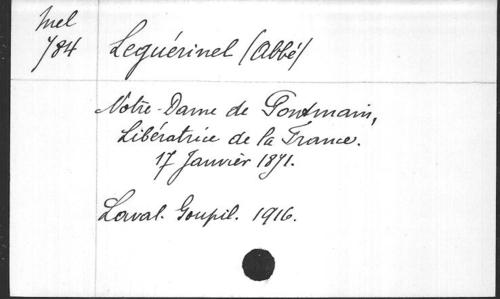 Mel
784
Leguérinel (Abbé)
Notre-Dame de Pontmain,
Libératrice de la France.
17 Janvier 1871.
Laval. Goupil. 1916.